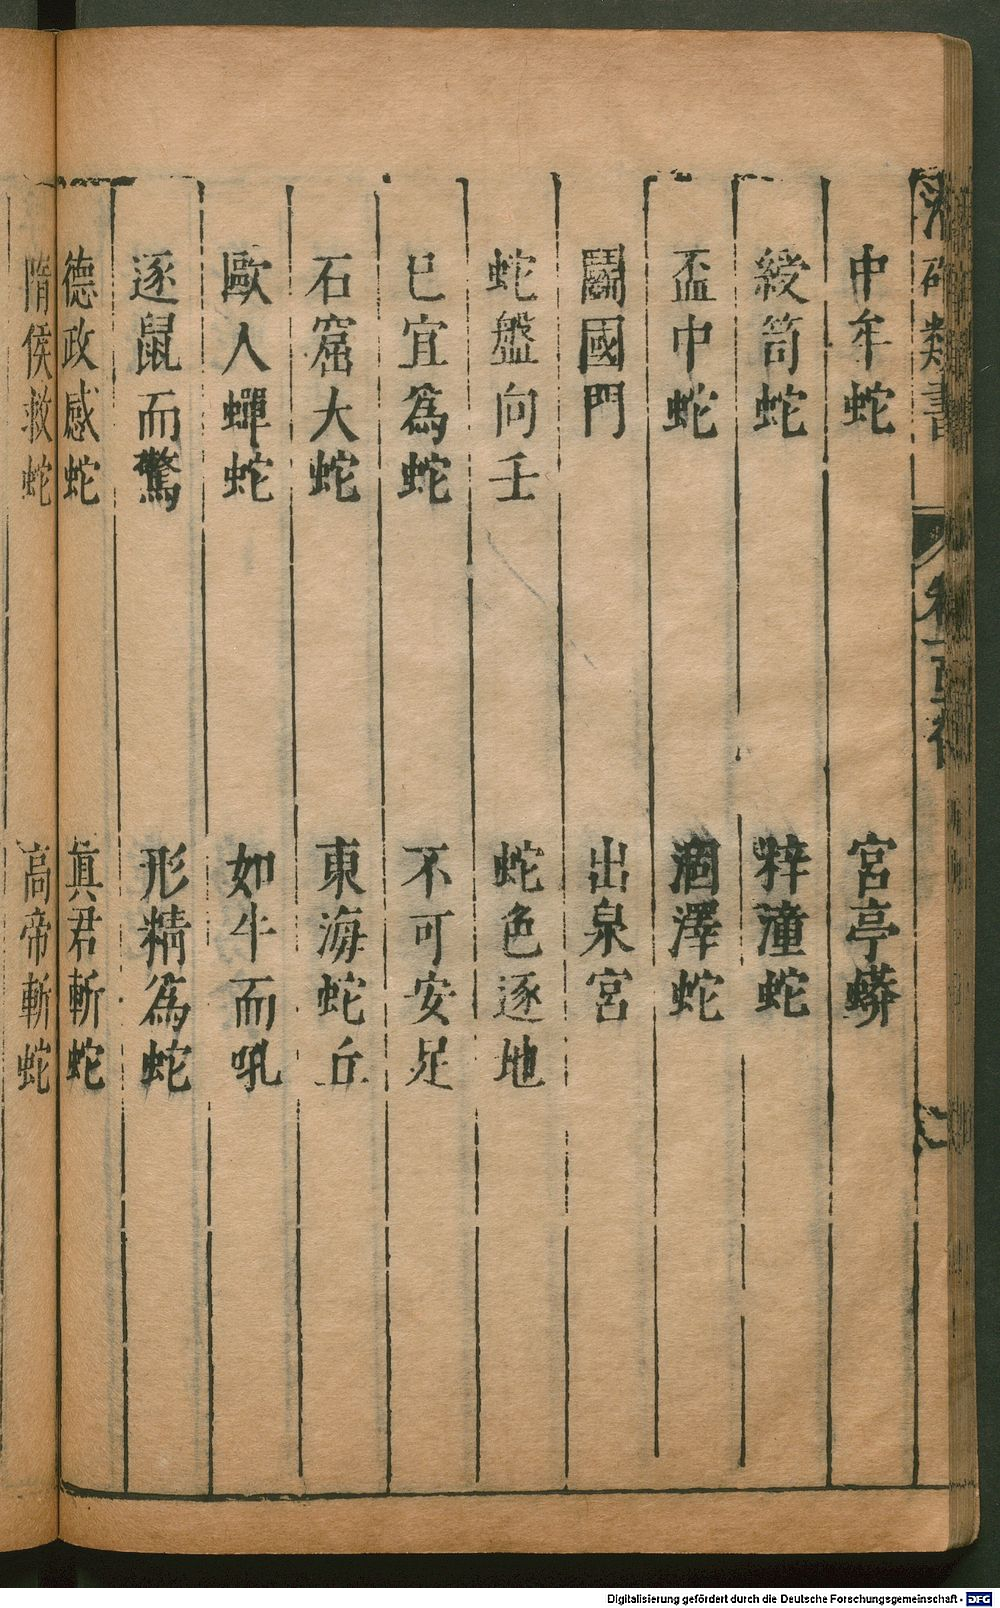 類書
中牟蛇 宮亭蟒
綬笥蛇 梓潼蛇
盃中蛇 涸澤蛇
鬬國門 出泉宮
蛇盤向壬 蛇色逐地
巳宜為蛇 不可安足
石窟大蛇 東海蛇丘
歐人蟬蛇 如牛而吼
逐鼠而驚 形精為蛇
德政感蛇 真君斬蛇
隋侯救蛇 高帝斬蛇
Digitalisierung gefördert durch die Deutsche Forschungsgemeinschaft - DFG